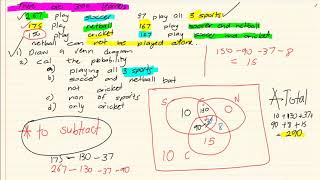 267 play soccer 97 play all 3 sports
175 play netball 167 play soccer and netball
150 play cricket 187 play soccer and cricket
netball can not be played alone.
1) Draw a venn diagram
2) Cal the probability
a) playing all 3 sports
b) soccer and netball but
not cricket
c) non of sports
d) only cricket
150-90-37-8
= 15
* to subtract
175 - 130 - 37
267 - 130 - 37 - 90
S
N
10
90
8
15
10
C
A-Total
10+130+37+
90+8+15
= 290